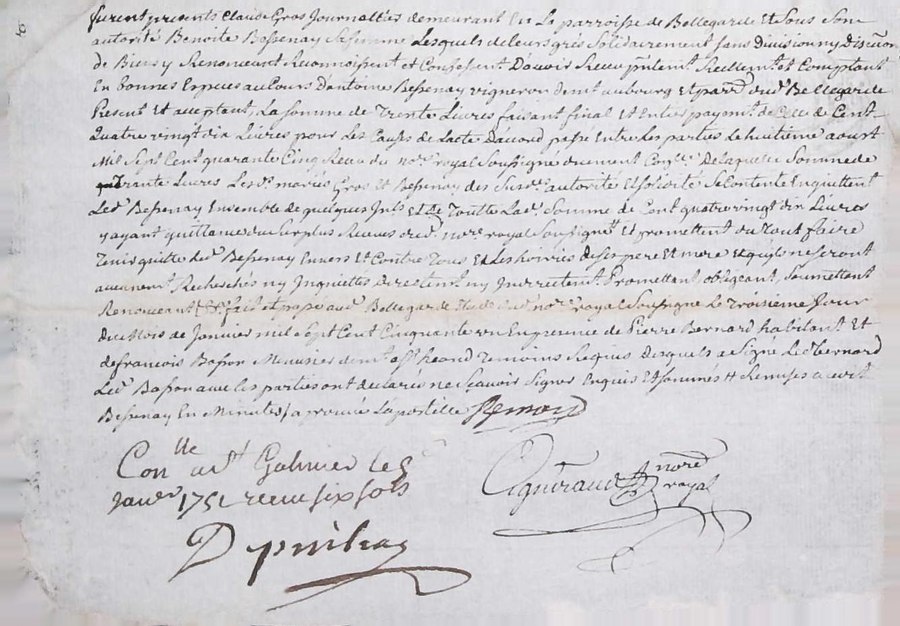 furent presents Claude Gros Journallier demeurant En La parroisse de Bellegarde Et Sous Son
autorité Benoite Bessenay Sa femme Lesquels de leurs grés Solidairement sans division ny Discution
de Biens y Renonceant Reconnoissent et Confessent Davoir Receu Reellement et Comptant
En bonnes Espices au Cours D'antoine Bessenay vigneron demt au bourg Et parre dud. Bellegarde
Present Et acceptant, La somme de Trente Livres faisant final et Entier payemt. de Celle de Cent
quatre vingt dix Livres pour Les Causes de Lacte Dacord passé Entre Les parties Le huitieme aoust
Mil Sept Cent quarante Cinq Receu du nore. royal Soussigné De laquelle Somme de
Trante Livres Les ds. mariés Gros Et Bessenay des Susdes. autorité Et solidité Se Contente En quittent
Led. Bessenay Ensemble de quelques Et de Toutte Lade. Somme de Cent quatre vingt dix Livres
y ayant quittance du Surplus Receue dud. nore. royal Soussigné Et promettent du tout faire
Tenir quitte Led. Bessenay Envers Et Contre Tous Et Les hoirs de Ses pere Et mere Et quils ne Seront
aucunemt. Recherchés ny Inquiettés Directemt. ny Indirectemt. Promettant obligeant, Soumettant
Renonceant &a. fait et passé aud. Bellegarde nore. royal Soussigné Le Troisieme Jour
du Mois de Janvier mil Sept Cent Cinquante un En presence de Pierre Bernard habitant Et
de francois Basson Menusier demt. Temoins Requis Desquels a Signé Led. Bernard
Led. Basson avec les parties ont declaré ne Scavoir Signer Enquis Et sommés
Bessenay En Minutte / aprouvé Lapostille Bernard
Conlle art Galmier le 8
Janer 1751 receu six sols
nore
royal